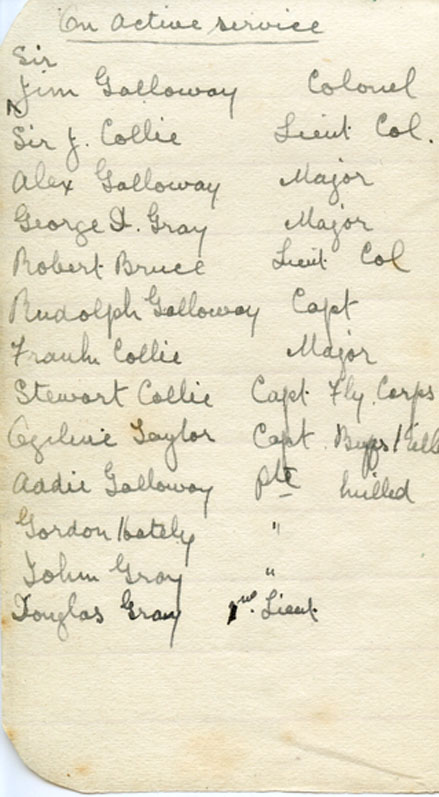 On Active service
Sir
Jim Galloway Colonel
Sir J. Collie Lieut Col.
Alex Galloway Major
George D. Gray Major
Robert Bruce Lieut Col
Rudolph Galloway Capt
Frank Collie Major
Stewart Collie Capt Fly. Corps
Ogilvie Taylor Capt. Buffs
Addie Galloway Pte killed
Gordon Hately "
John Gray "
Douglas Gray Lieut.